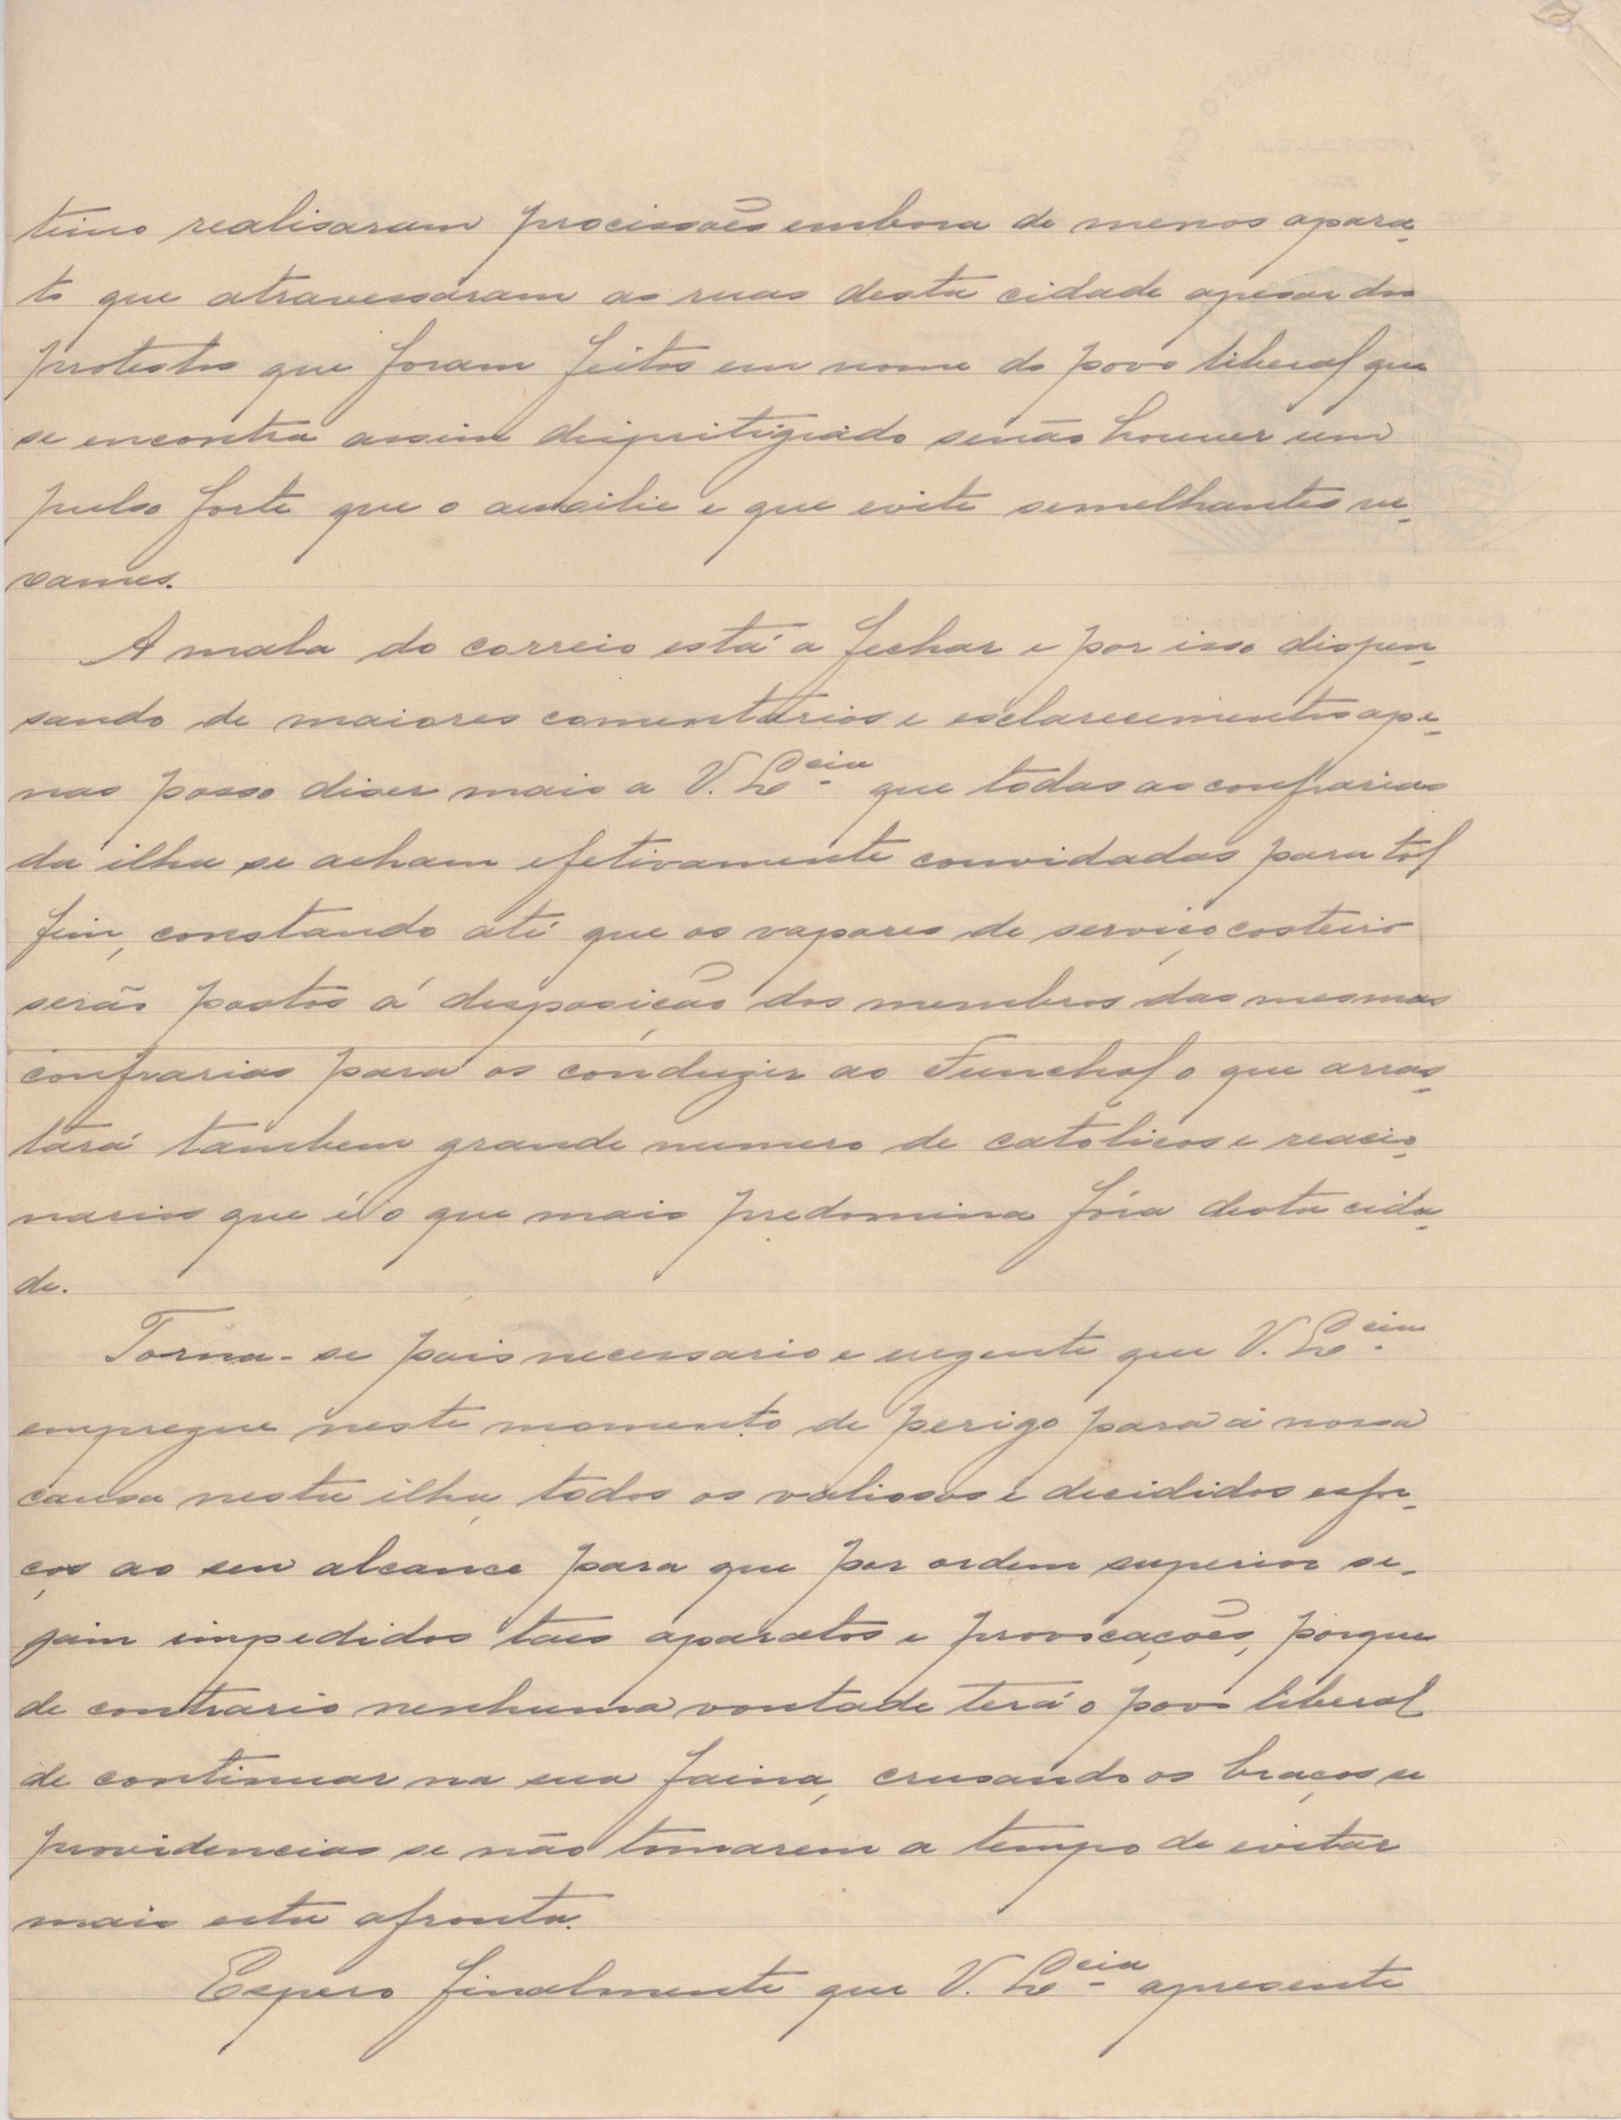 timo realisaram procissões embora de menos apara-
to que atravessaram as ruas desta cidade apesar dos
protestos que foram feitos em nome do povo liberal que
se encontra assim desprestigiado senão houver um
pulso forte que o auxilie e que evite semelhantes ve-
xames.
A mala do correio está a fechar e por isso dispen-
sando de maiores comentarios e esclarecimentos ape-
nas posso diser mais a V. Ex.cia que todas as confrarias
da ilha se acham efetivamente convidadas para tal
fim, constando até que os vapores de serviço costeiro
serão postos á disposição dos membros das mesmas
confrarias para os conduzir ao Funchal o que arras-
tará tambem grande numero de catolicos e reacio-
narios que é o que mais predomina fóra desta cida-
de.
Torna-se pois necessario e urgente que V. Ex.cia
empregue neste momento de perigo para a nossa
causa nesta ilha, todos os valiosos e decididos esfor-
ços ao seu alcance para que por ordem superior se-
jam impedidos taes aparatos e provocações, porque
de contrario nenhuma vontade terá o povo liberal
de continuar na sua faina, crusando os braços se
providencias se não tomarem a tempo de evitar
mais esta afronta.
Espero finalmente que V. Ex.cia apresente